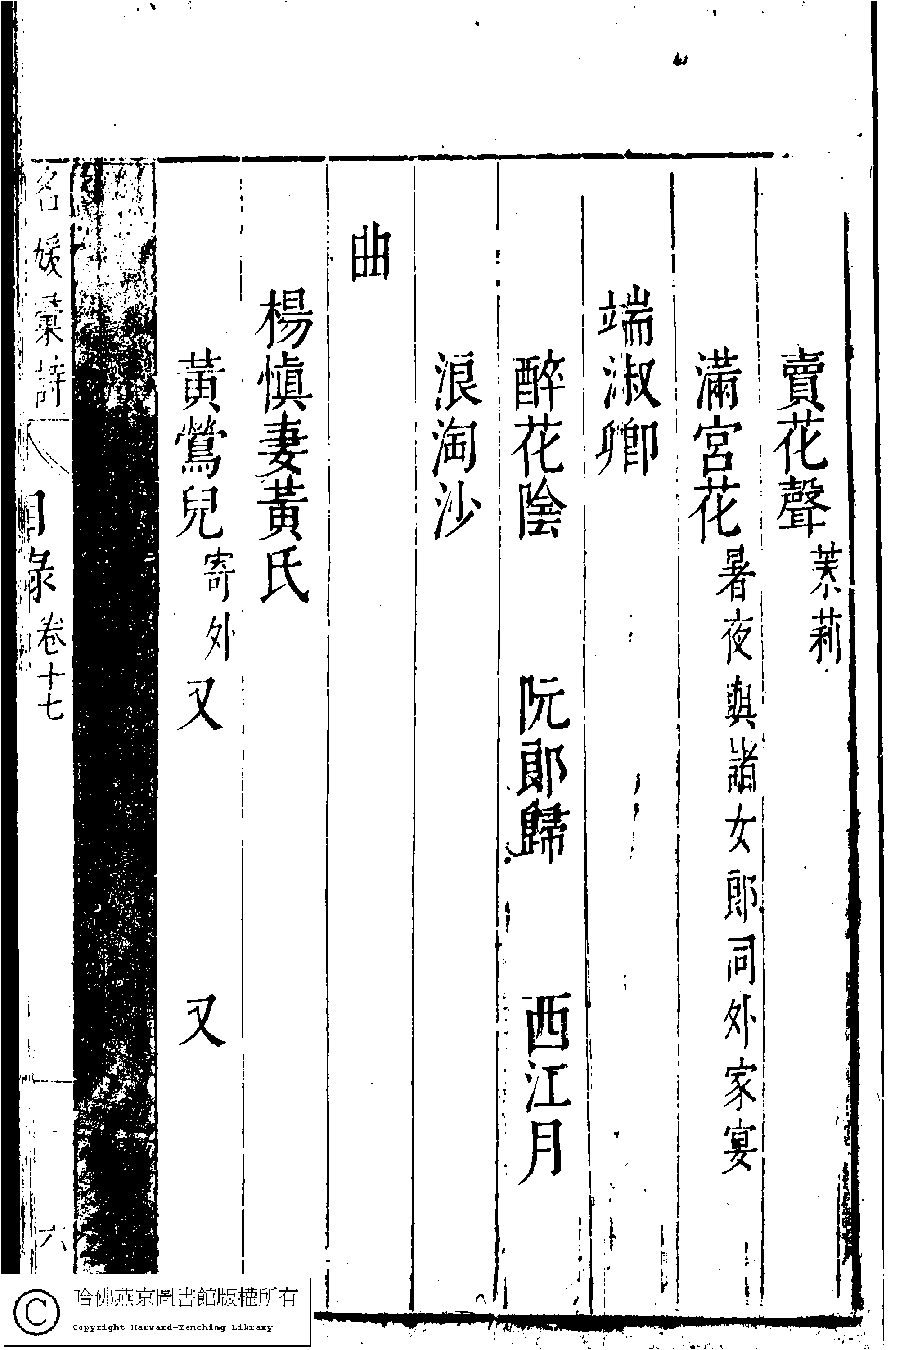 賣花聲茉莉
滿宮花暑夜與諸女郎同外家宴
端淑卿
醉花陰　阮郎歸　西江月
浪淘沙
曲
楊慎妻黃氏
黃鶯兒寄外　又　又
名媛彙詩　目錄　卷十七　六
哈佛燕京圖書館版權所有
Copyright Harvard-Yenching Library